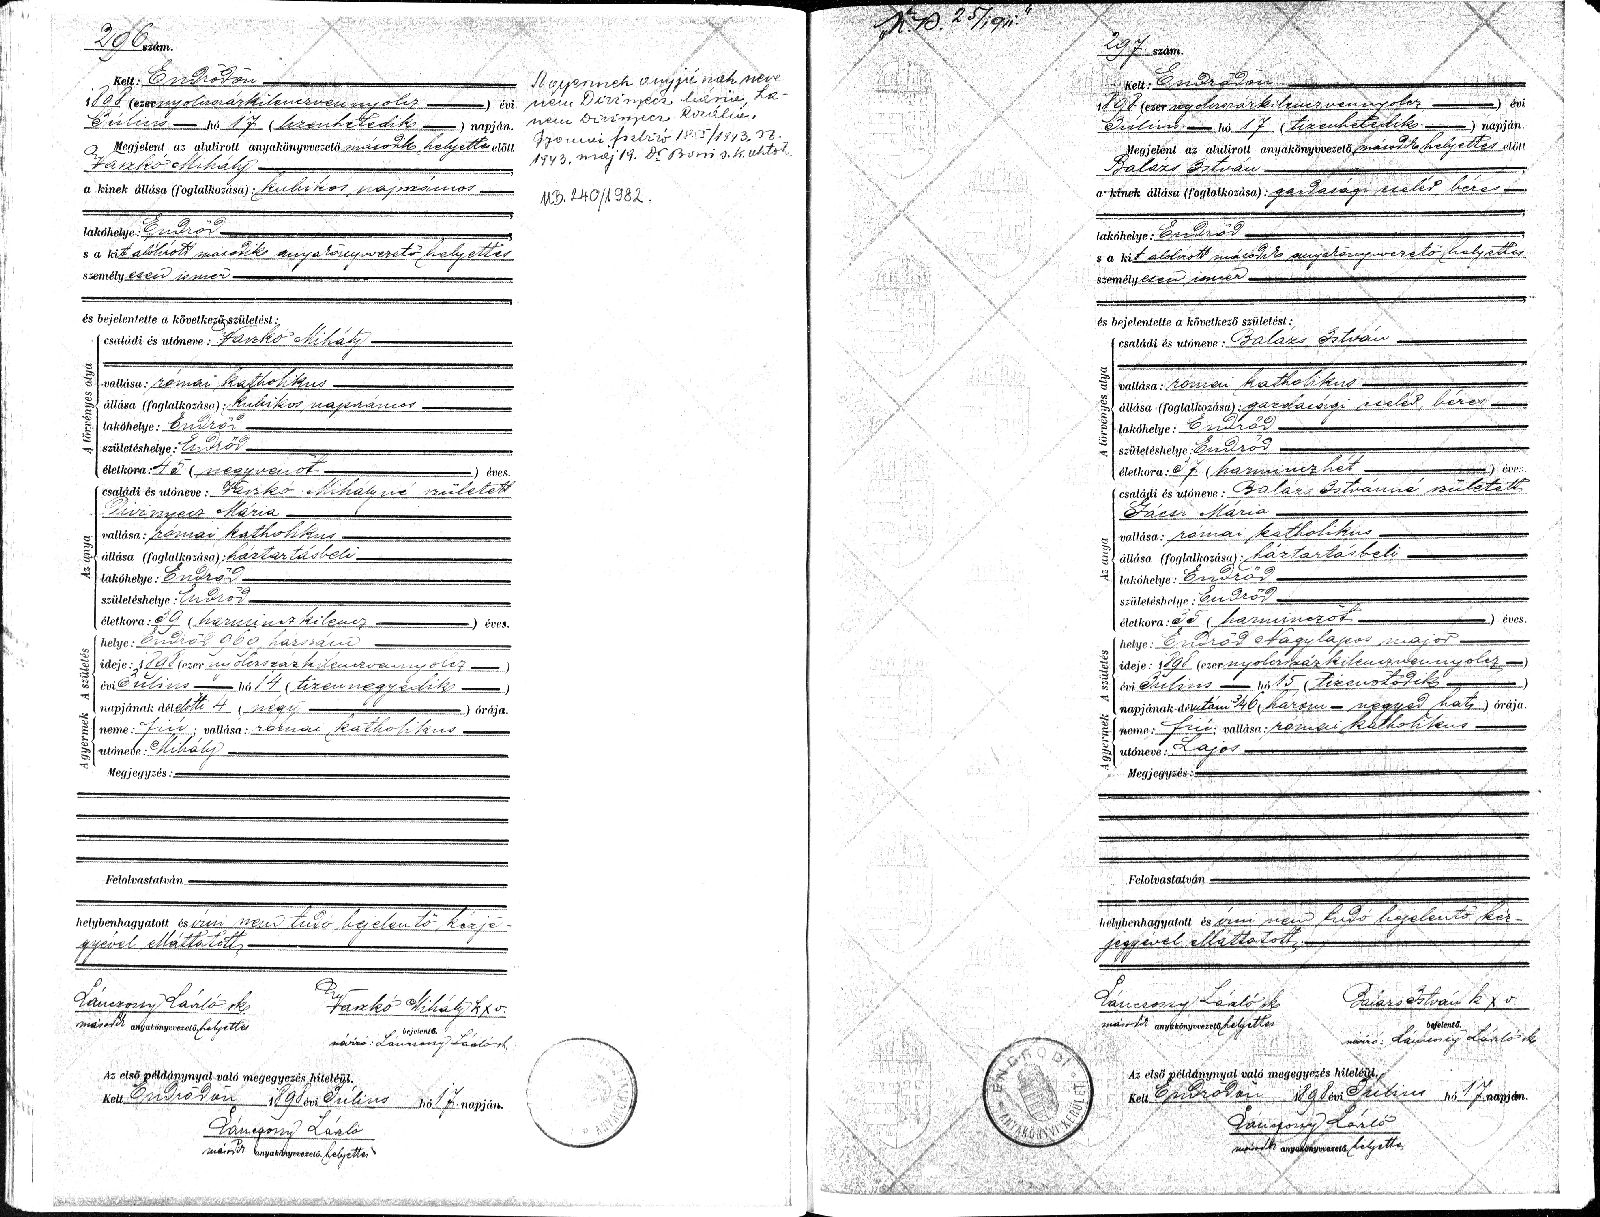 296 szám.
Kelt: Endrődön
1898 (ezernyolczszázkilenczvennyolcz) évi
Július hó 17 (tizenhetedik) napján.
Megjelent az alulirott anyakönyvvezető második helyettes előtt
Vaszkó Mihály
a kinek állása (foglalkozása): kubikos napszámos
lakóhelye: Endrőd
s a kit alólirott második anyakönyvvezető helyettes
személyesen ismer
és bejelentette a következő születést:
A törvényes atya
családi és utóneve: Vaszkó Mihály
vallása: római katholikus
állása (foglalkozása): kubikos napszámos
lakóhelye: Endrőd
születéshelye: Endrőd
életkora: 45 (negyvenöt) éves.
Az anya
családi és utóneve: Vaszkó Mihályné született
Dirinyecz Mária
vallása: római katholikus
állása (foglalkozása): háztartásbeli
lakóhelye: Endrőd
születéshelye: Endrőd
életkora: 39 (harminczkilencz) éves.
A születés
helye: Endrőd 960 házszám
ideje: 1898 (ezernyolczszázkilenczvennyolcz)
évi Július hó 14 (tizennegyedik)
napjának délelőtti 4 (négy) órája.
A gyermek
neme: fiú; vallása: római katholikus
utóneve: Mihály
Megjegyzés:
Felolvastatván
helybenhagyatott és írni nem tudó bejelentő kézje-
gyével elláttatott.
Lánczony László sk
második anyakönyvvezető helyettes
Vaszkó Mihály k x v.
bejelentő.
névíró: Lánczony László sk.
Az első példánynyal való megegyezés hiteléül.
Kelt Endrődön 1898 évi Július hó 17 napján.
Lánczony László
második anyakönyvvezető helyettes
nevezettnek anyjának neve
nem Dirinyecz Mária, ha-
nem Dirinyecz Rozália.
1943. máj 19.
240/1982.
ANYAKÖNYVI
25/1911
297 szám.
Kelt: Endrődön
1898 (ezernyolczszázkilenczvennyolcz) évi
Július hó 17 (tizenhetedik) napján.
Megjelent az alulirott anyakönyvvezető második helyettes előtt
Balázs István
a kinek állása (foglalkozása): gazdasági cseléd béres
lakóhelye: Endrőd
s a kit alólirott második anyakönyvvezető helyettes
személyesen ismer
és bejelentette a következő születést:
A törvényes atya
családi és utóneve: Balázs István
vallása: római katholikus
állása (foglalkozása): gazdasági cseléd, béres
lakóhelye: Endrőd
születéshelye: Endrőd
életkora: 37 (harminczhét) éves.
Az anya
családi és utóneve: Balázs Istvánné született
Jácsi Mária
vallása: római katholikus
állása (foglalkozása): háztartásbeli
lakóhelye: Endrőd
születéshelye: Endrőd
életkora: 35 (harminczöt) éves.
A születés
helye: Endrőd Nagylapos major
ideje: 1898 (ezernyolczszázkilenczvennyolcz)
évi Július hó 15 (tizenötödik)
napjának délutáni 3/4 6 (három negyed hat) órája.
A gyermek
neme: fiú; vallása: római katholikus
utóneve: Lajos
Megjegyzés:
Felolvastatván
helybenhagyatott és írni nem tudó bejelentő kéz-
jegyével elláttatott.
Lánczony László sk
második anyakönyvvezető helyettes
Balázs István k x v.
bejelentő.
névíró: Lánczony László sk
Az első példánynyal való megegyezés hiteléül.
Kelt Endrődön 1898 évi Július hó 17 napján.
Lánczony László
második anyakönyvvezető helyettes
ENDRŐDI
ANYAKÖNYVI KERÜLET